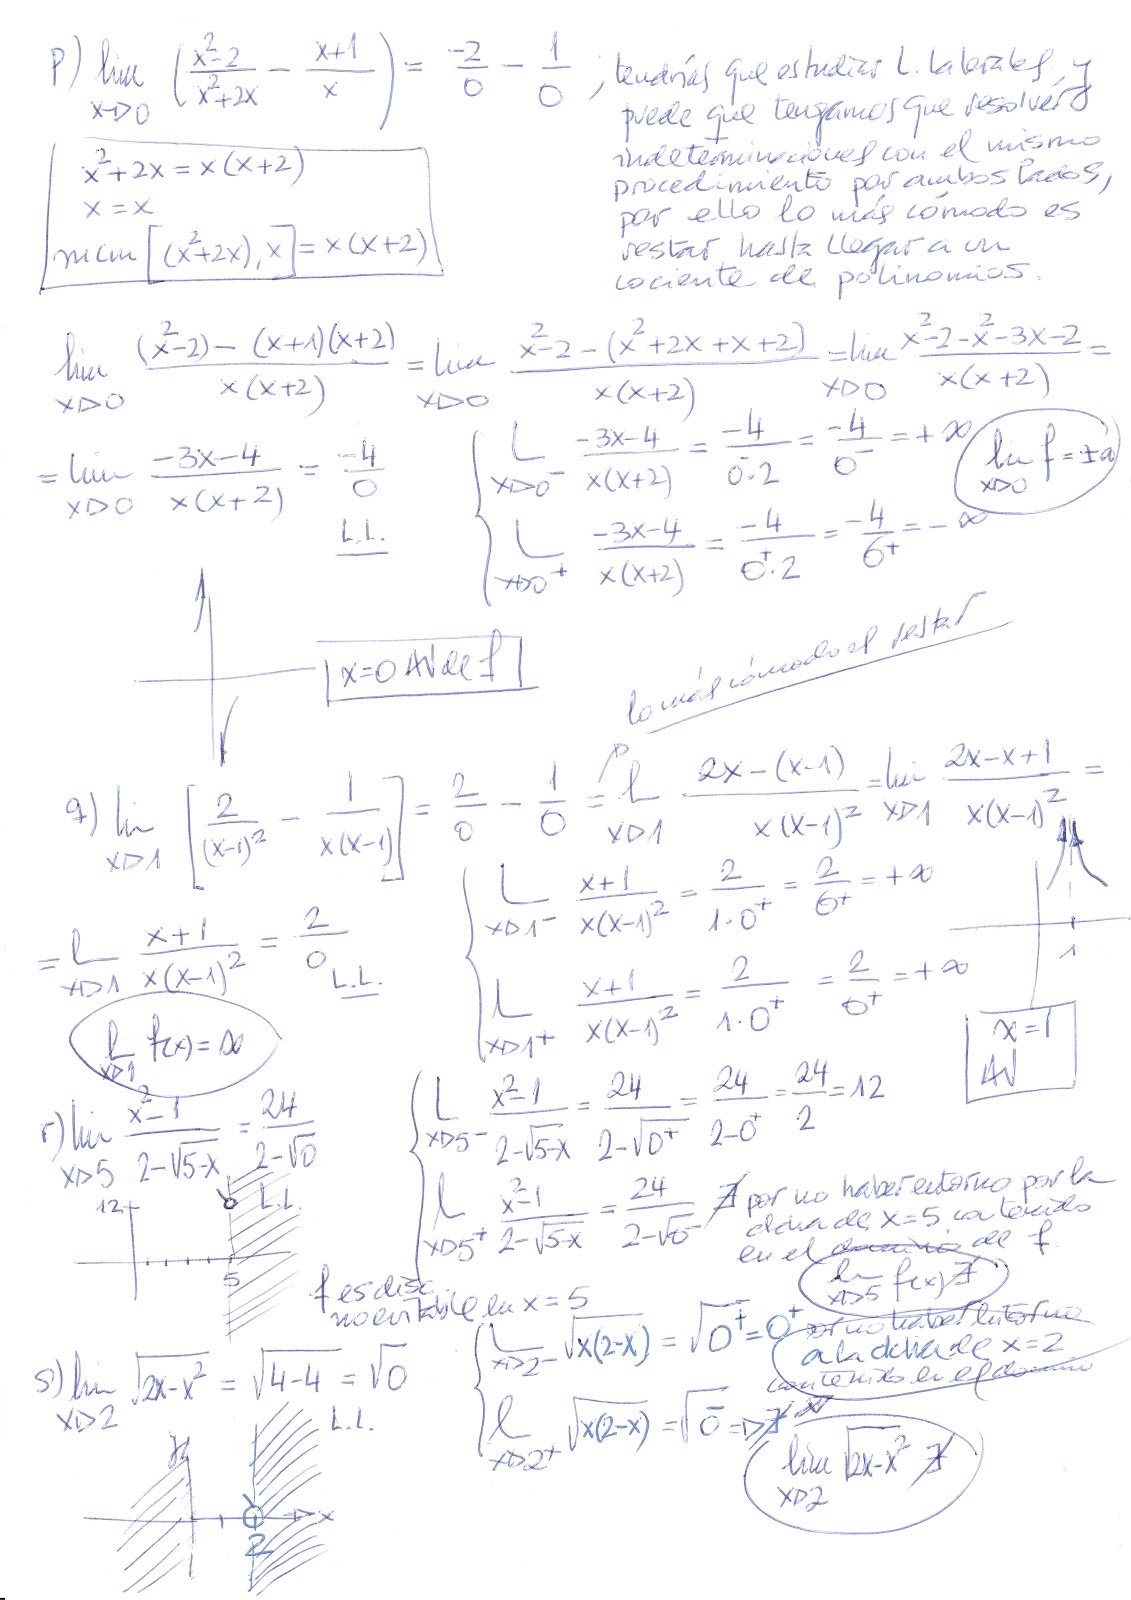 p) lim x→0 (x²-2/x²+2x - x+1/x) = -2/0 - 1/0 ; tendrías que estudiar L. laterales, y
puede que tengamos que resolver
indeterminaciones con el mismo
procedimiento por ambos lados,
por ello lo más cómodo es
restar hasta llegar a un
cociente de polinomios.
x²+2x = x(x+2)
x = x
mcm [(x²+2x), x] = x(x+2)
lim x→0 (x²-2) - (x+1)(x+2) / x(x+2) = lim x→0 x²-2-(x²+2x+x+2) / x(x+2) = lim x→0 x²-2-x²-3x-2 / x(x+2) =
= lim x→0 -3x-4 / x(x+2) = -4/0
L.L.
L x→0⁻ -3x-4 / x(x+2) = -4 / 0⁻·2 = -4/0⁻ = +∞
lim x→0 f = ±∞
L x→0⁺ -3x-4 / x(x+2) = -4 / 0⁺·2 = -4/0⁺ = -∞
x=0 AV de f
lo más cómodo es restar
q) lim x→1 [2/(x-1)² - 1/x(x-1)] = 2/0 - 1/0 = l x→1 2x-(x-1) / x(x-1)² = lim x→1 2x-x+1 / x(x-1)² =
= l x→1 x+1 / x(x-1)² = 2/0
L.L.
L x→1⁻ x+1 / x(x-1)² = 2 / 1·0⁺ = 2/0⁺ = +∞
l x→1⁺ x+1 / x(x-1)² = 2 / 1·0⁺ = 2/0⁺ = +∞
1
l x→1 f(x) = ∞
x=1
AV
r) lim x→5 x²-1 / 2-√5-x = 24 / 2-√0
L.L.
L x→5⁻ x²-1 / 2-√5-x = 24 / 2-√0⁺ = 24 / 2-0⁺ = 24/2 = 12
l x→5⁺ x²-1 / 2-√5-x = 24 / 2-√0⁻ ∄ por no haber entorno por la
dcha de x=5 contenido
en el dominio de f
lim x→5 f(x) ∄
12
5
f es disc
no evitable en x=5
s) lim x→2 √2x-x² = √4-4 = √0
L.L.
L x→2⁻ √x(2-x) = √0⁺ = 0⁺
l x→2⁺ √x(2-x) = √0⁻ ⇒ ∄
por no haber entorno
a la dcha de x=2
contenido en el dominio
lim x→2 √2x-x² ∄
y
x
2